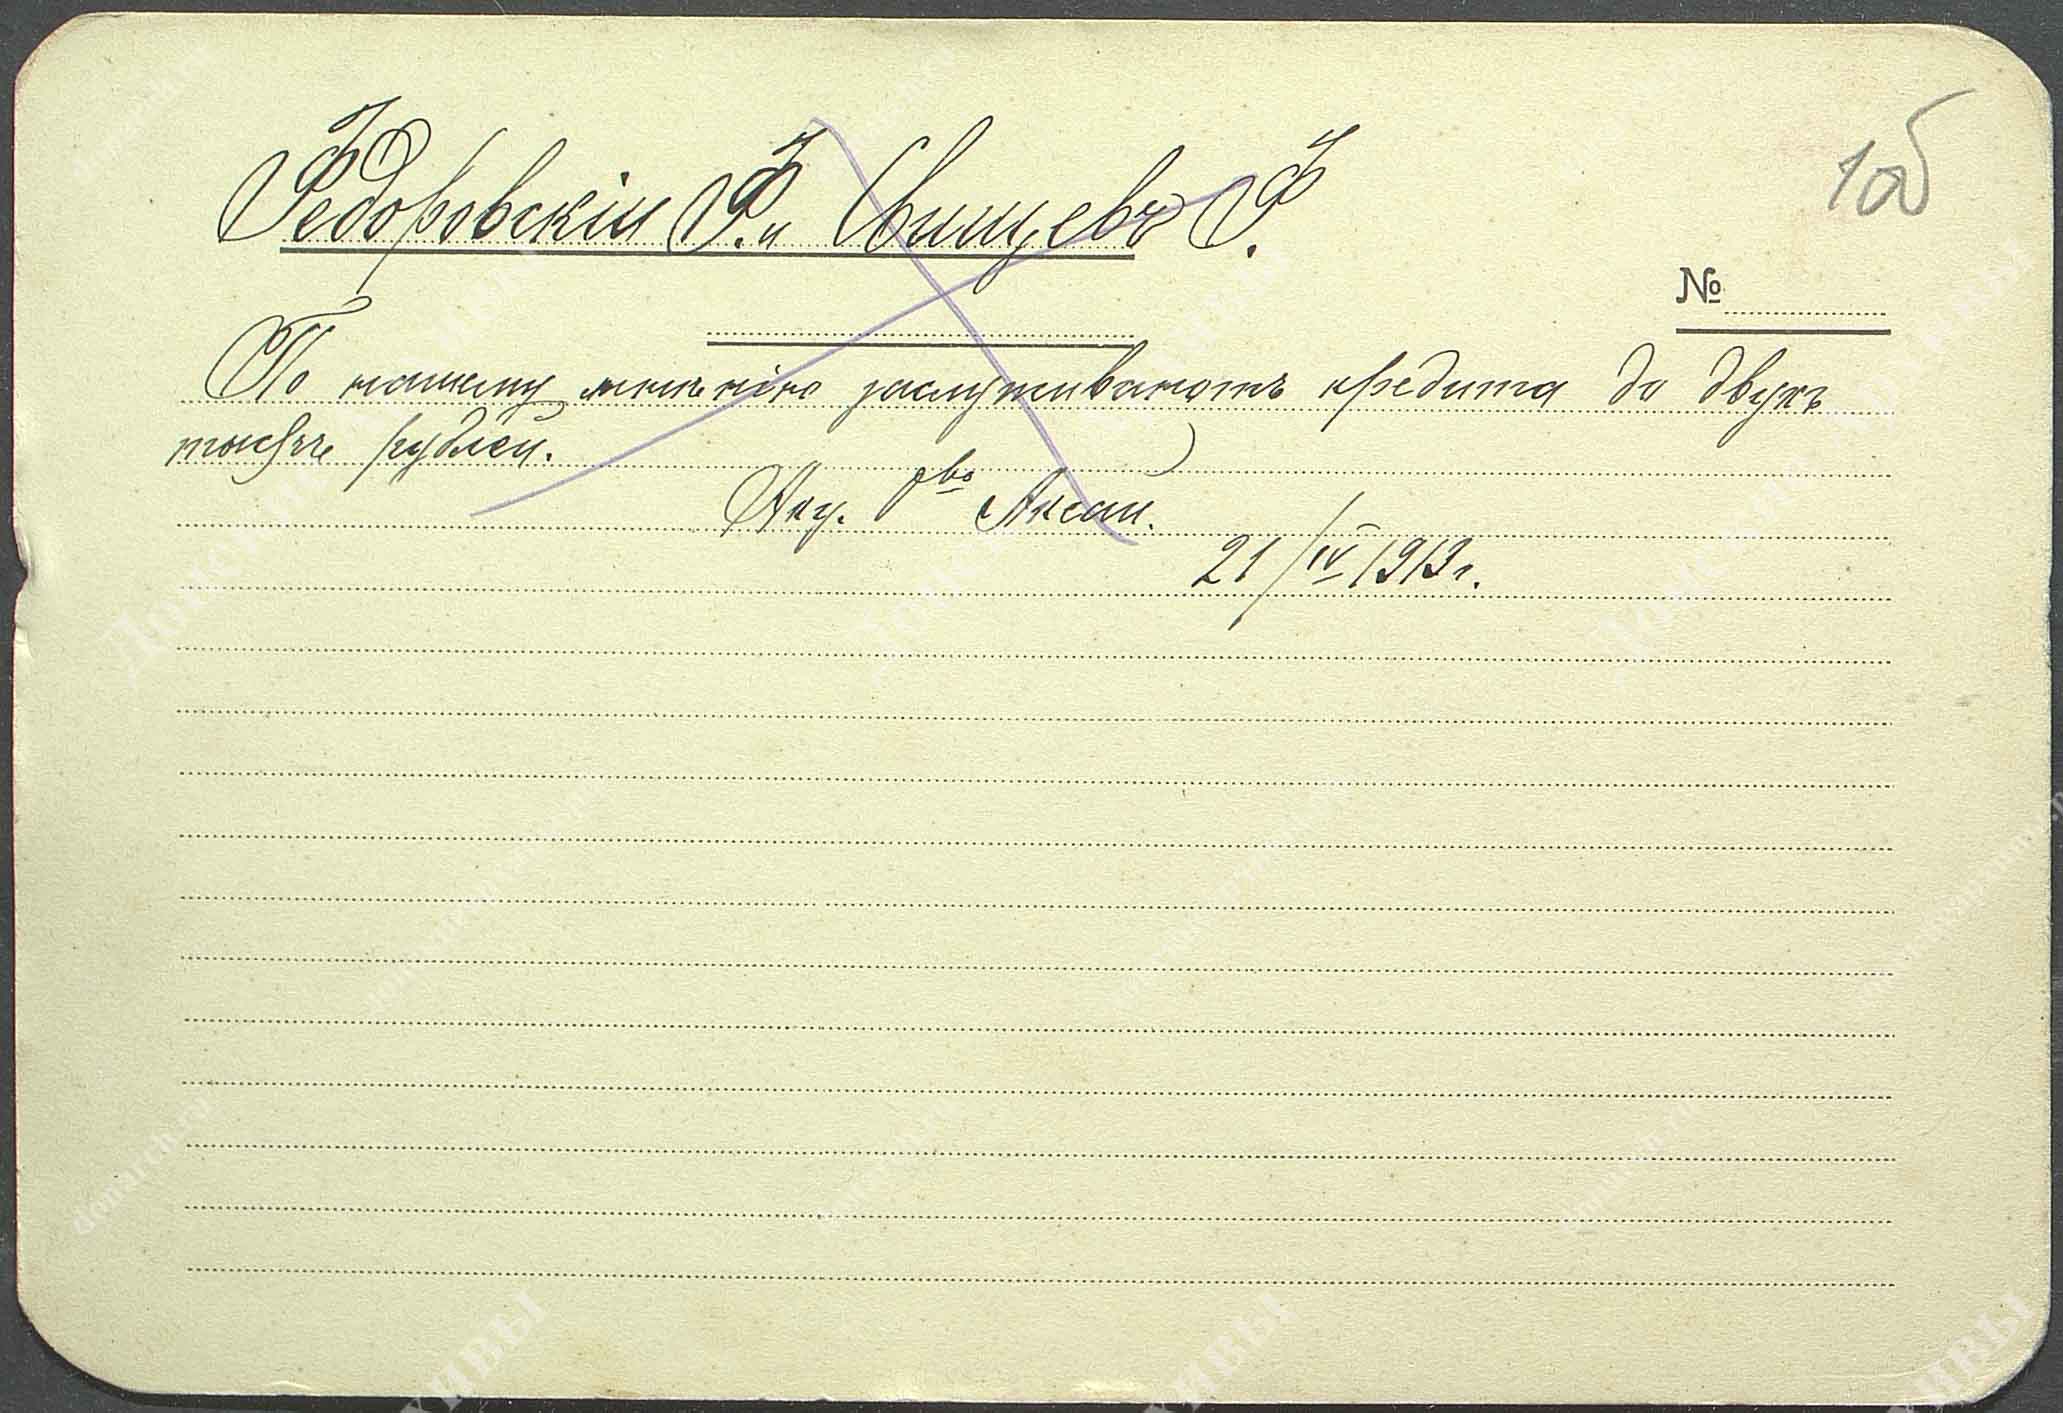 Федоровскій Ф. и Свищевъ Ф.
106
№
По нашему мнѣнію заслуживаютъ кредита до двухъ
тысячъ рублей.
Акц. О-во Аксай.
21/IV 1913 г.